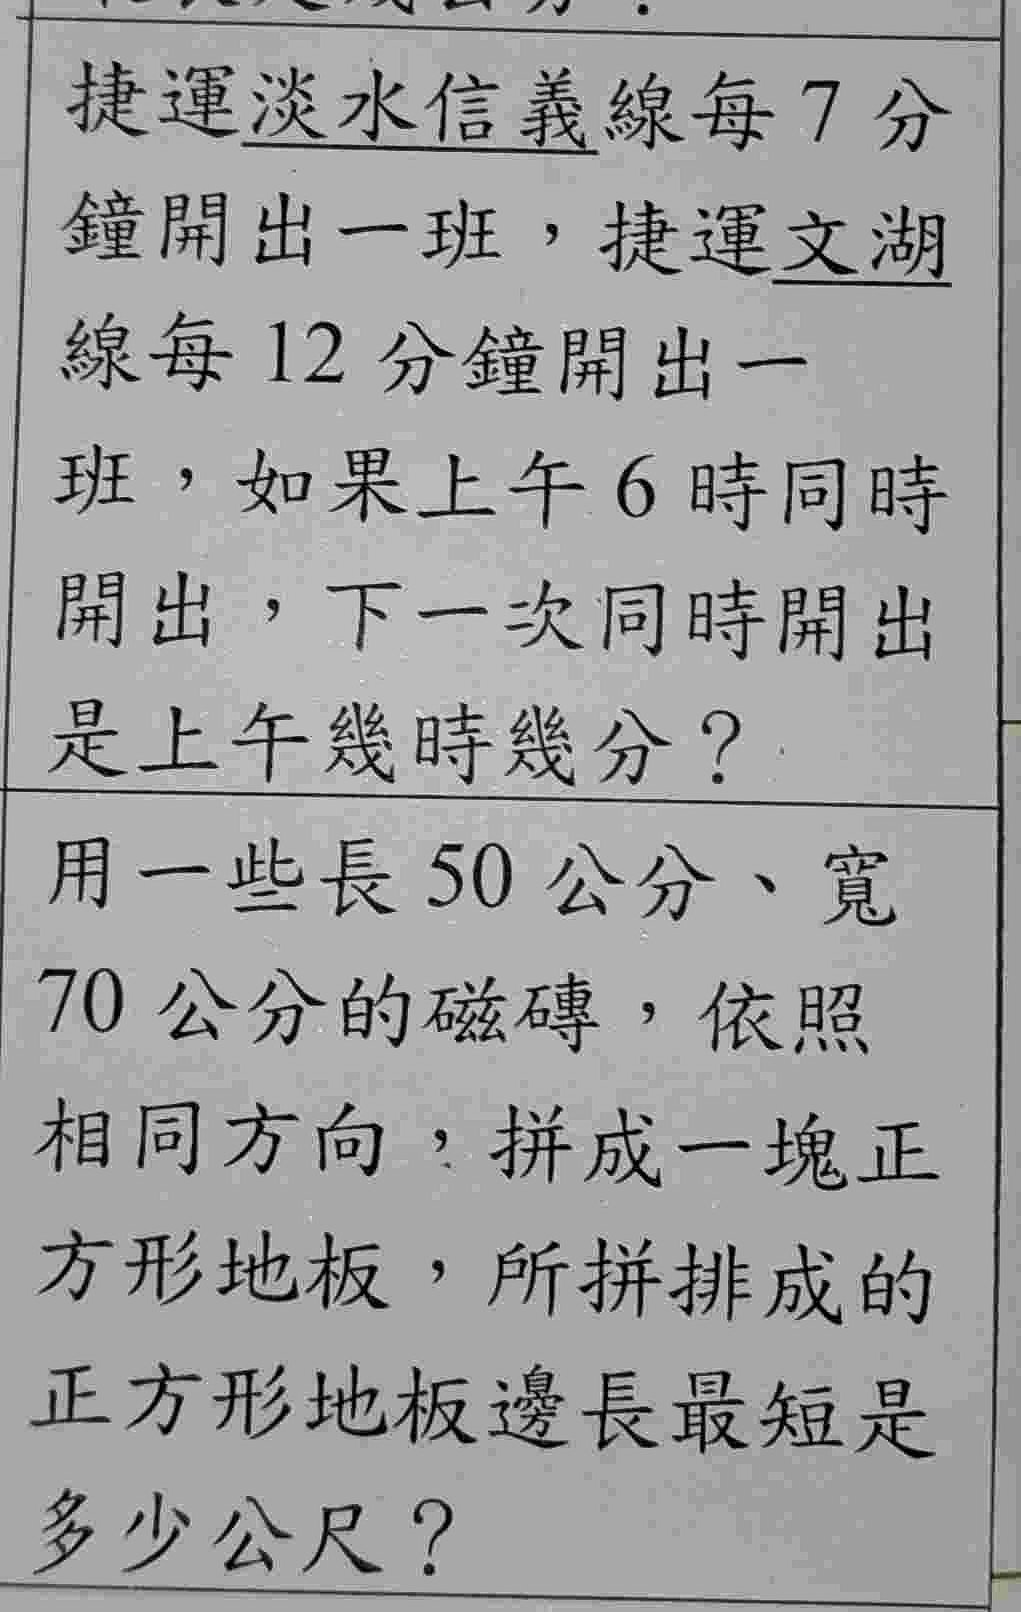 捷運淡水信義線每 7 分
鐘開出一班，捷運文湖
線每 12 分鐘開出一
班，如果上午 6 時同時
開出，下一次同時開出
是上午幾時幾分？
用一些長 50 公分、寬
70 公分的磁磚，依照
相同方向，拼成一塊正
方形地板，所拼排成的
正方形地板邊長最短是
多少公尺？